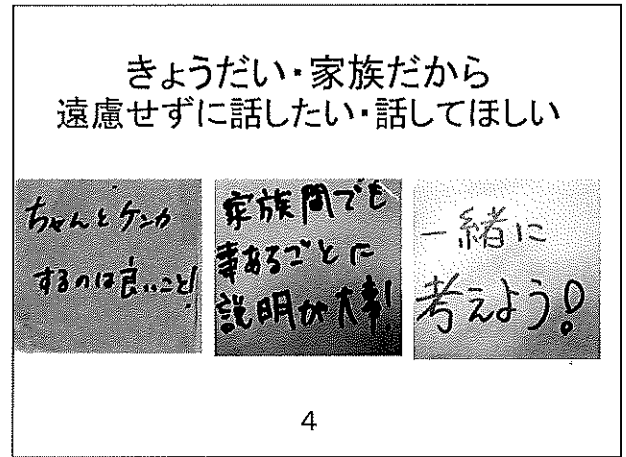 きょうだい・家族だから
遠慮せずに話したい・話してほしい
ちゃんとケンカ
するのは良いこと!
家族間でも
事あるごとに
説明が大事!
一緒に
考えよう!
4